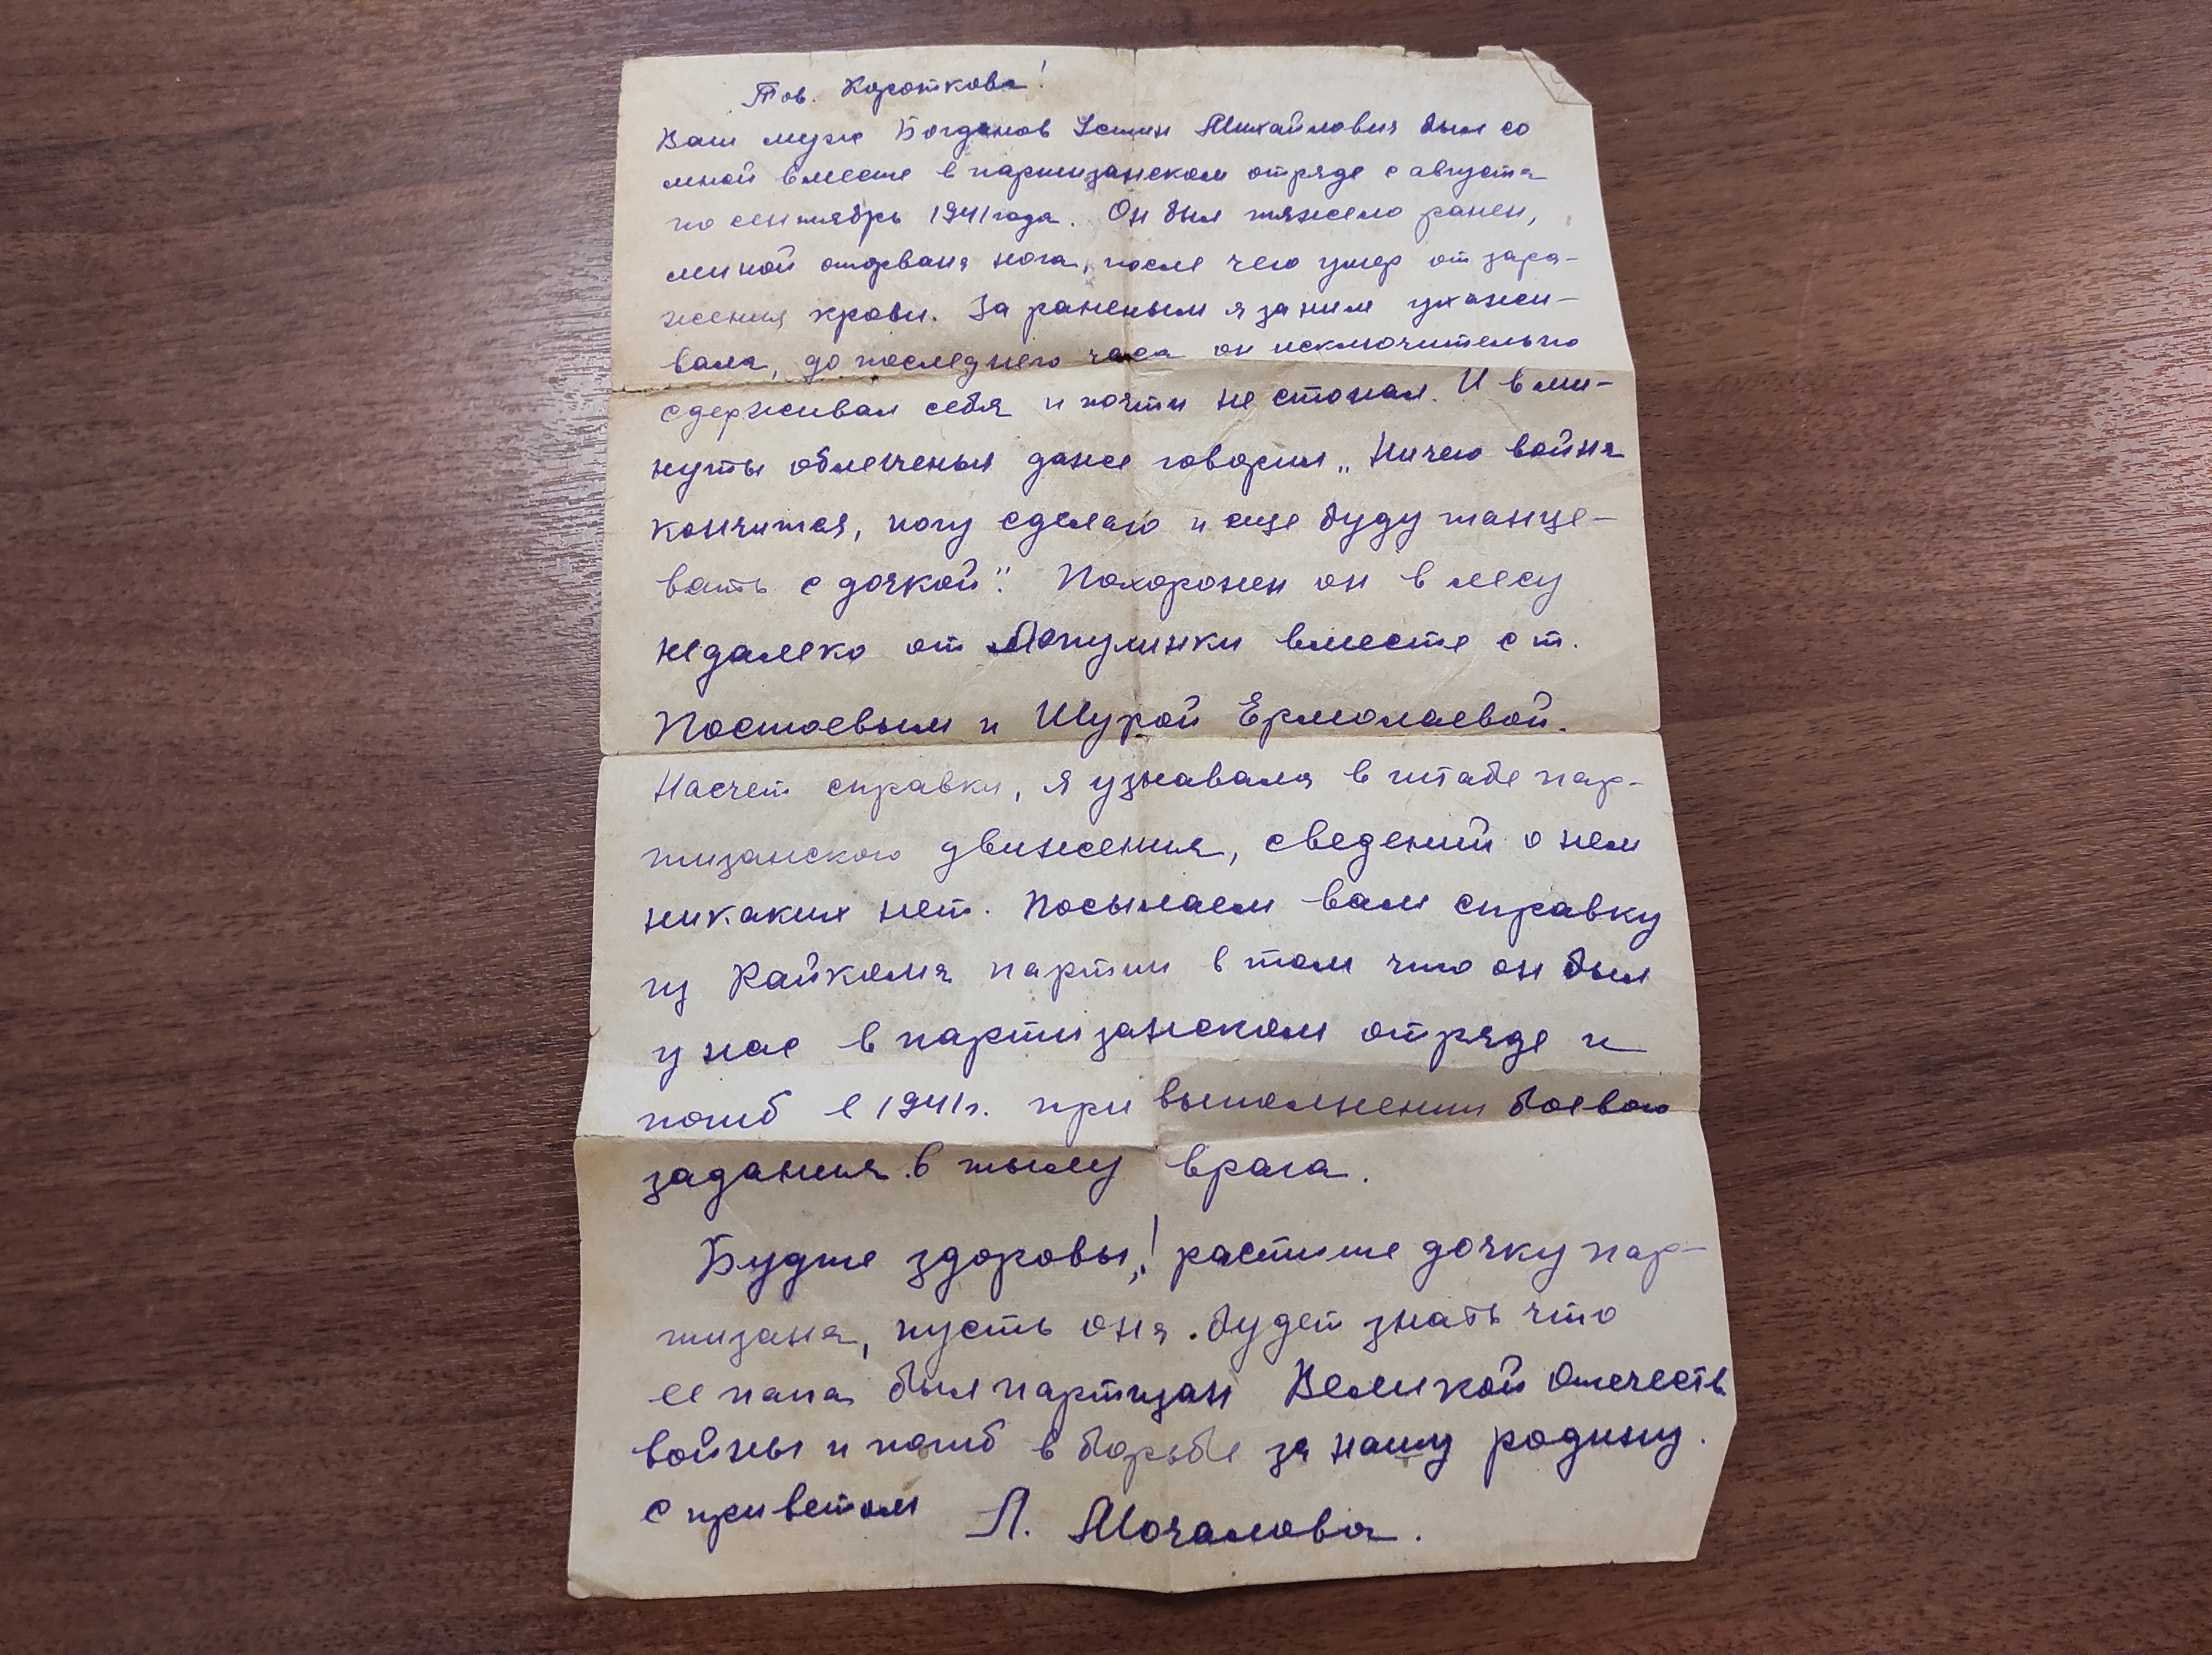 Тов. Короткова!
Ваш муж Богданов Устин Михайлович был со
мной вместе в партизанском отряде с августа
по сентябрь 1941 года. Он был тяжело ранен,
миной оторвана нога, после чего умер от зара-
жения крови. За раненым я за ним ухажи-
вала, до последнего часа он исключительно
сдерживал себя и почти не стонал. И в ми-
нуты облегченья даже говорил „Ничего война
кончится, ногу сделаю и еще буду танце-
вать с дочкой". Похоронен он в лесу
недалеко от Лопулинки вместе с т.
Постоевым и Шурой Ермолаевой.
Насчет справки, я узнавала в штабе пар-
тизанского движения, сведений о нем
никаких нет. Посылаем вам справку
из Райкома партии в том что он был
у нас в партизанском отряде и
погиб в 1941 г. при выполнении боевого
задания в тылу врага.
Будте здоровы,! растите дочку пар-
тизана, пусть она будет знать что
ее папа был партизан Великой Отечеств
войны и погиб в борьбе за нашу родину.
с приветом Л. Мочалова.